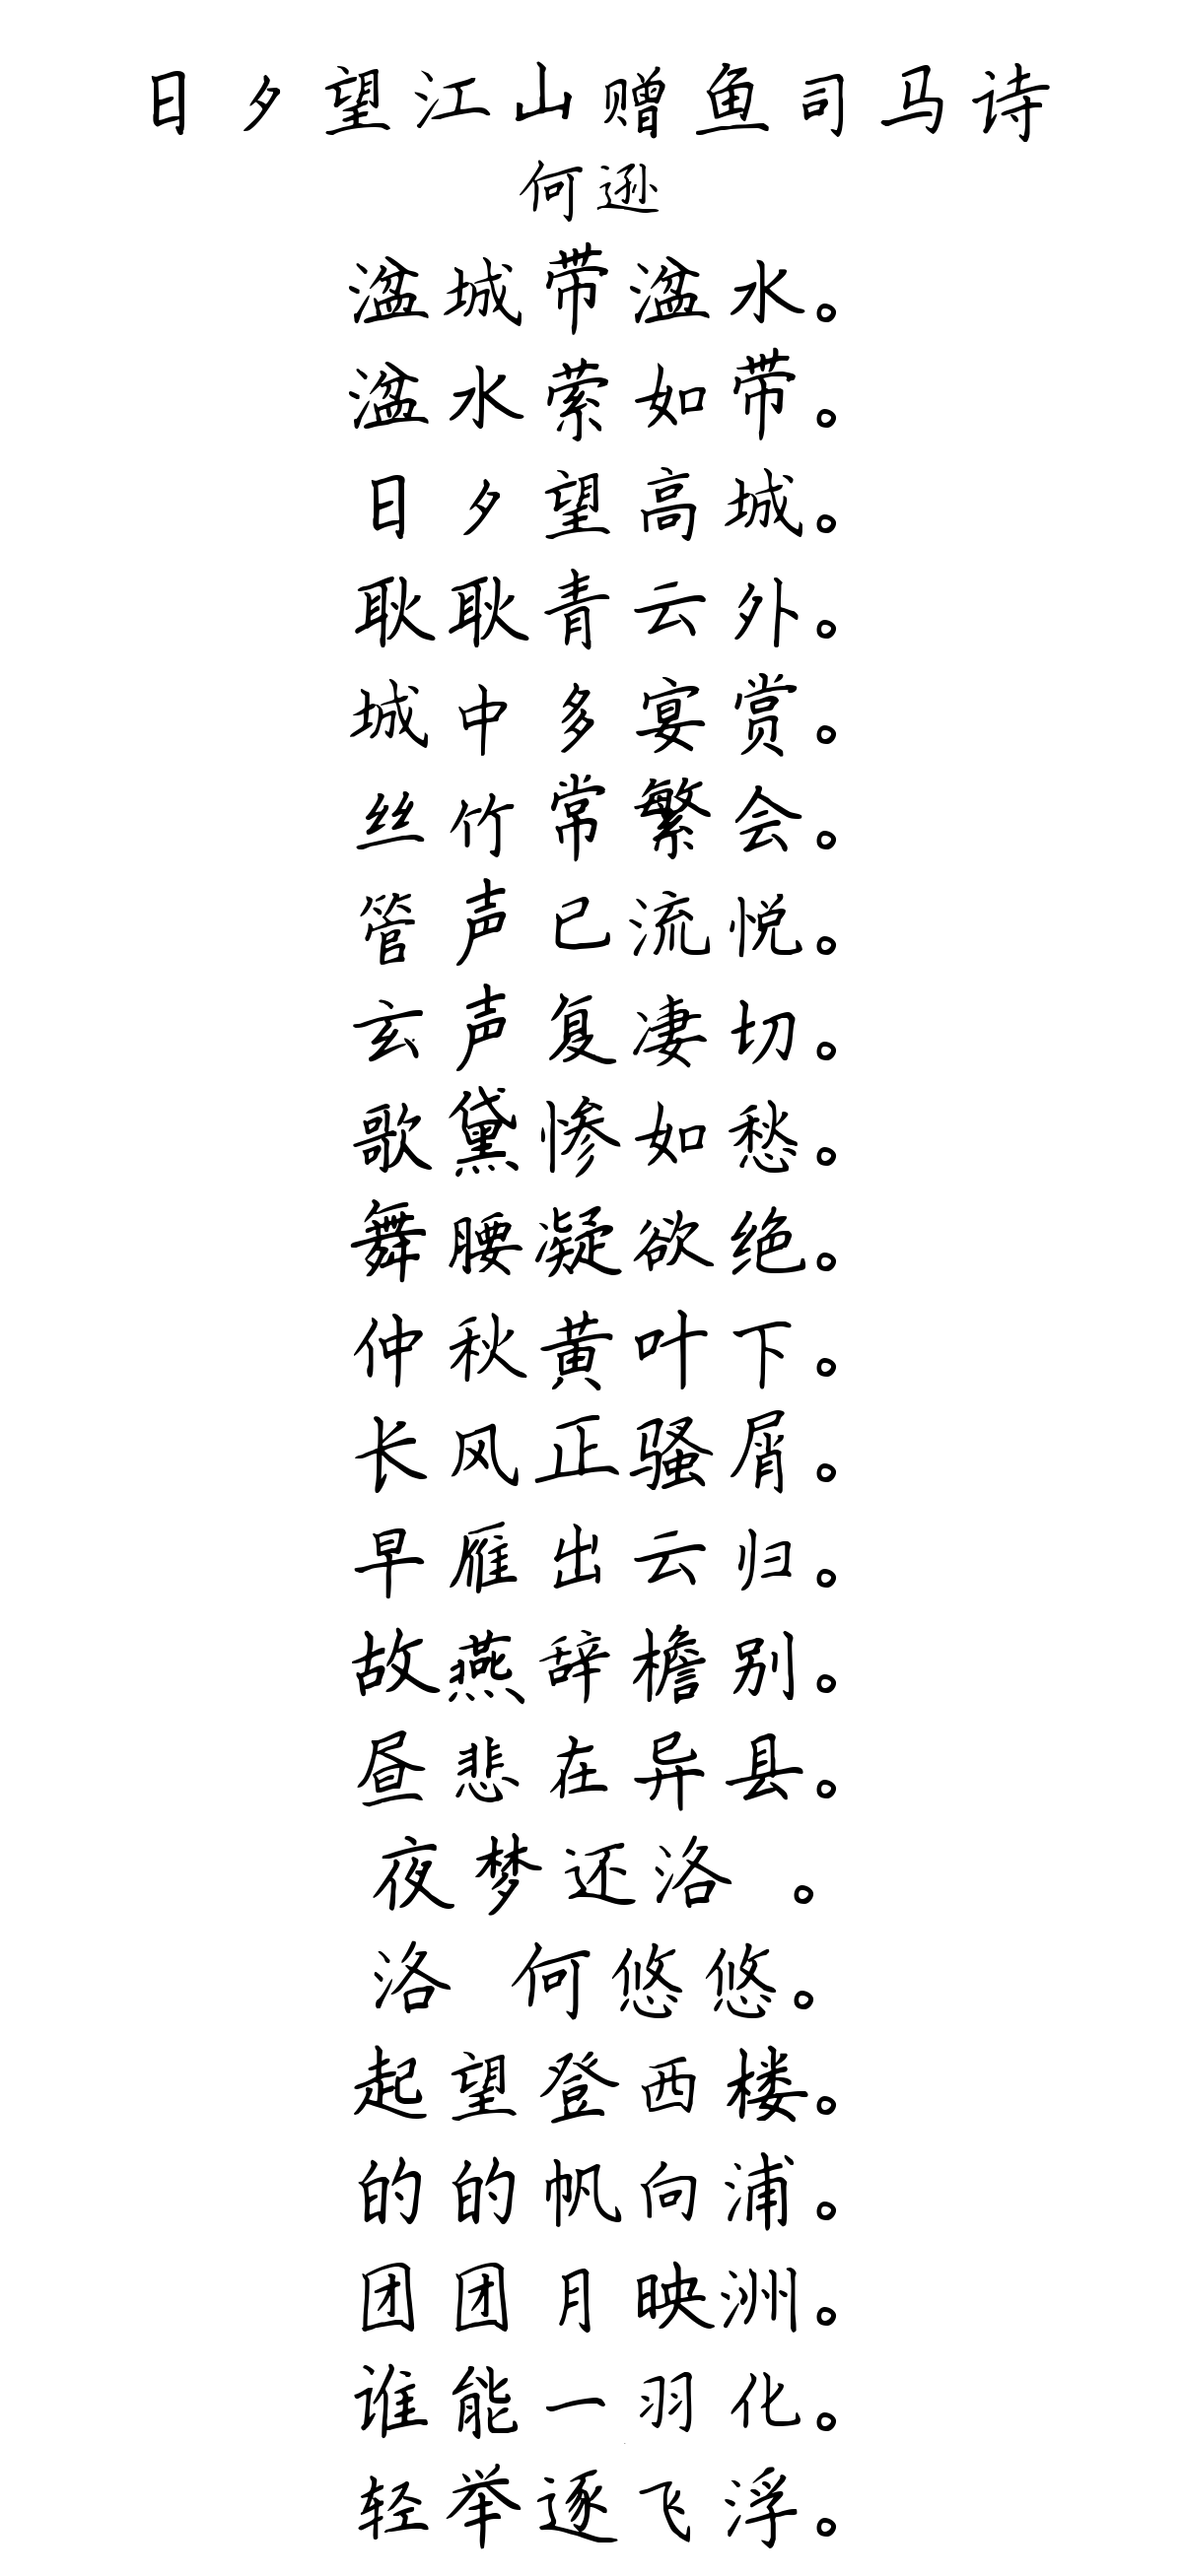 日夕望江山赠鱼司马诗
何逊
湓城带湓水。
湓水萦如带。
日夕望高城。
耿耿青云外。
城中多宴赏。
丝竹常繁会。
管声已流悦。
玄声复凄切。
歌黛惨如愁。
舞腰凝欲绝。
仲秋黄叶下。
长风正骚屑。
早雁出云归。
故燕辞檐别。
昼悲在异县。
夜梦还洛 。
洛 何悠悠。
起望登西楼。
的的帆向浦。
团团月映洲。
谁能一羽化。
轻举逐飞浮。